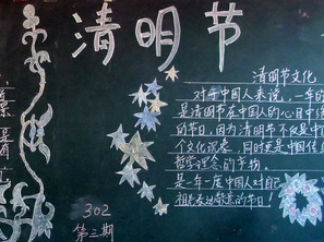 清明节
清明节文化
对于中国人来说，一年的
是清明节在中国人的心目中
的节日，因为清明节不仅是中
个文化沉淀，同时更是中国传
哲学理念的节物，
是一年一度中国人对自己
祖先表达敬意的节日！
302
第三期